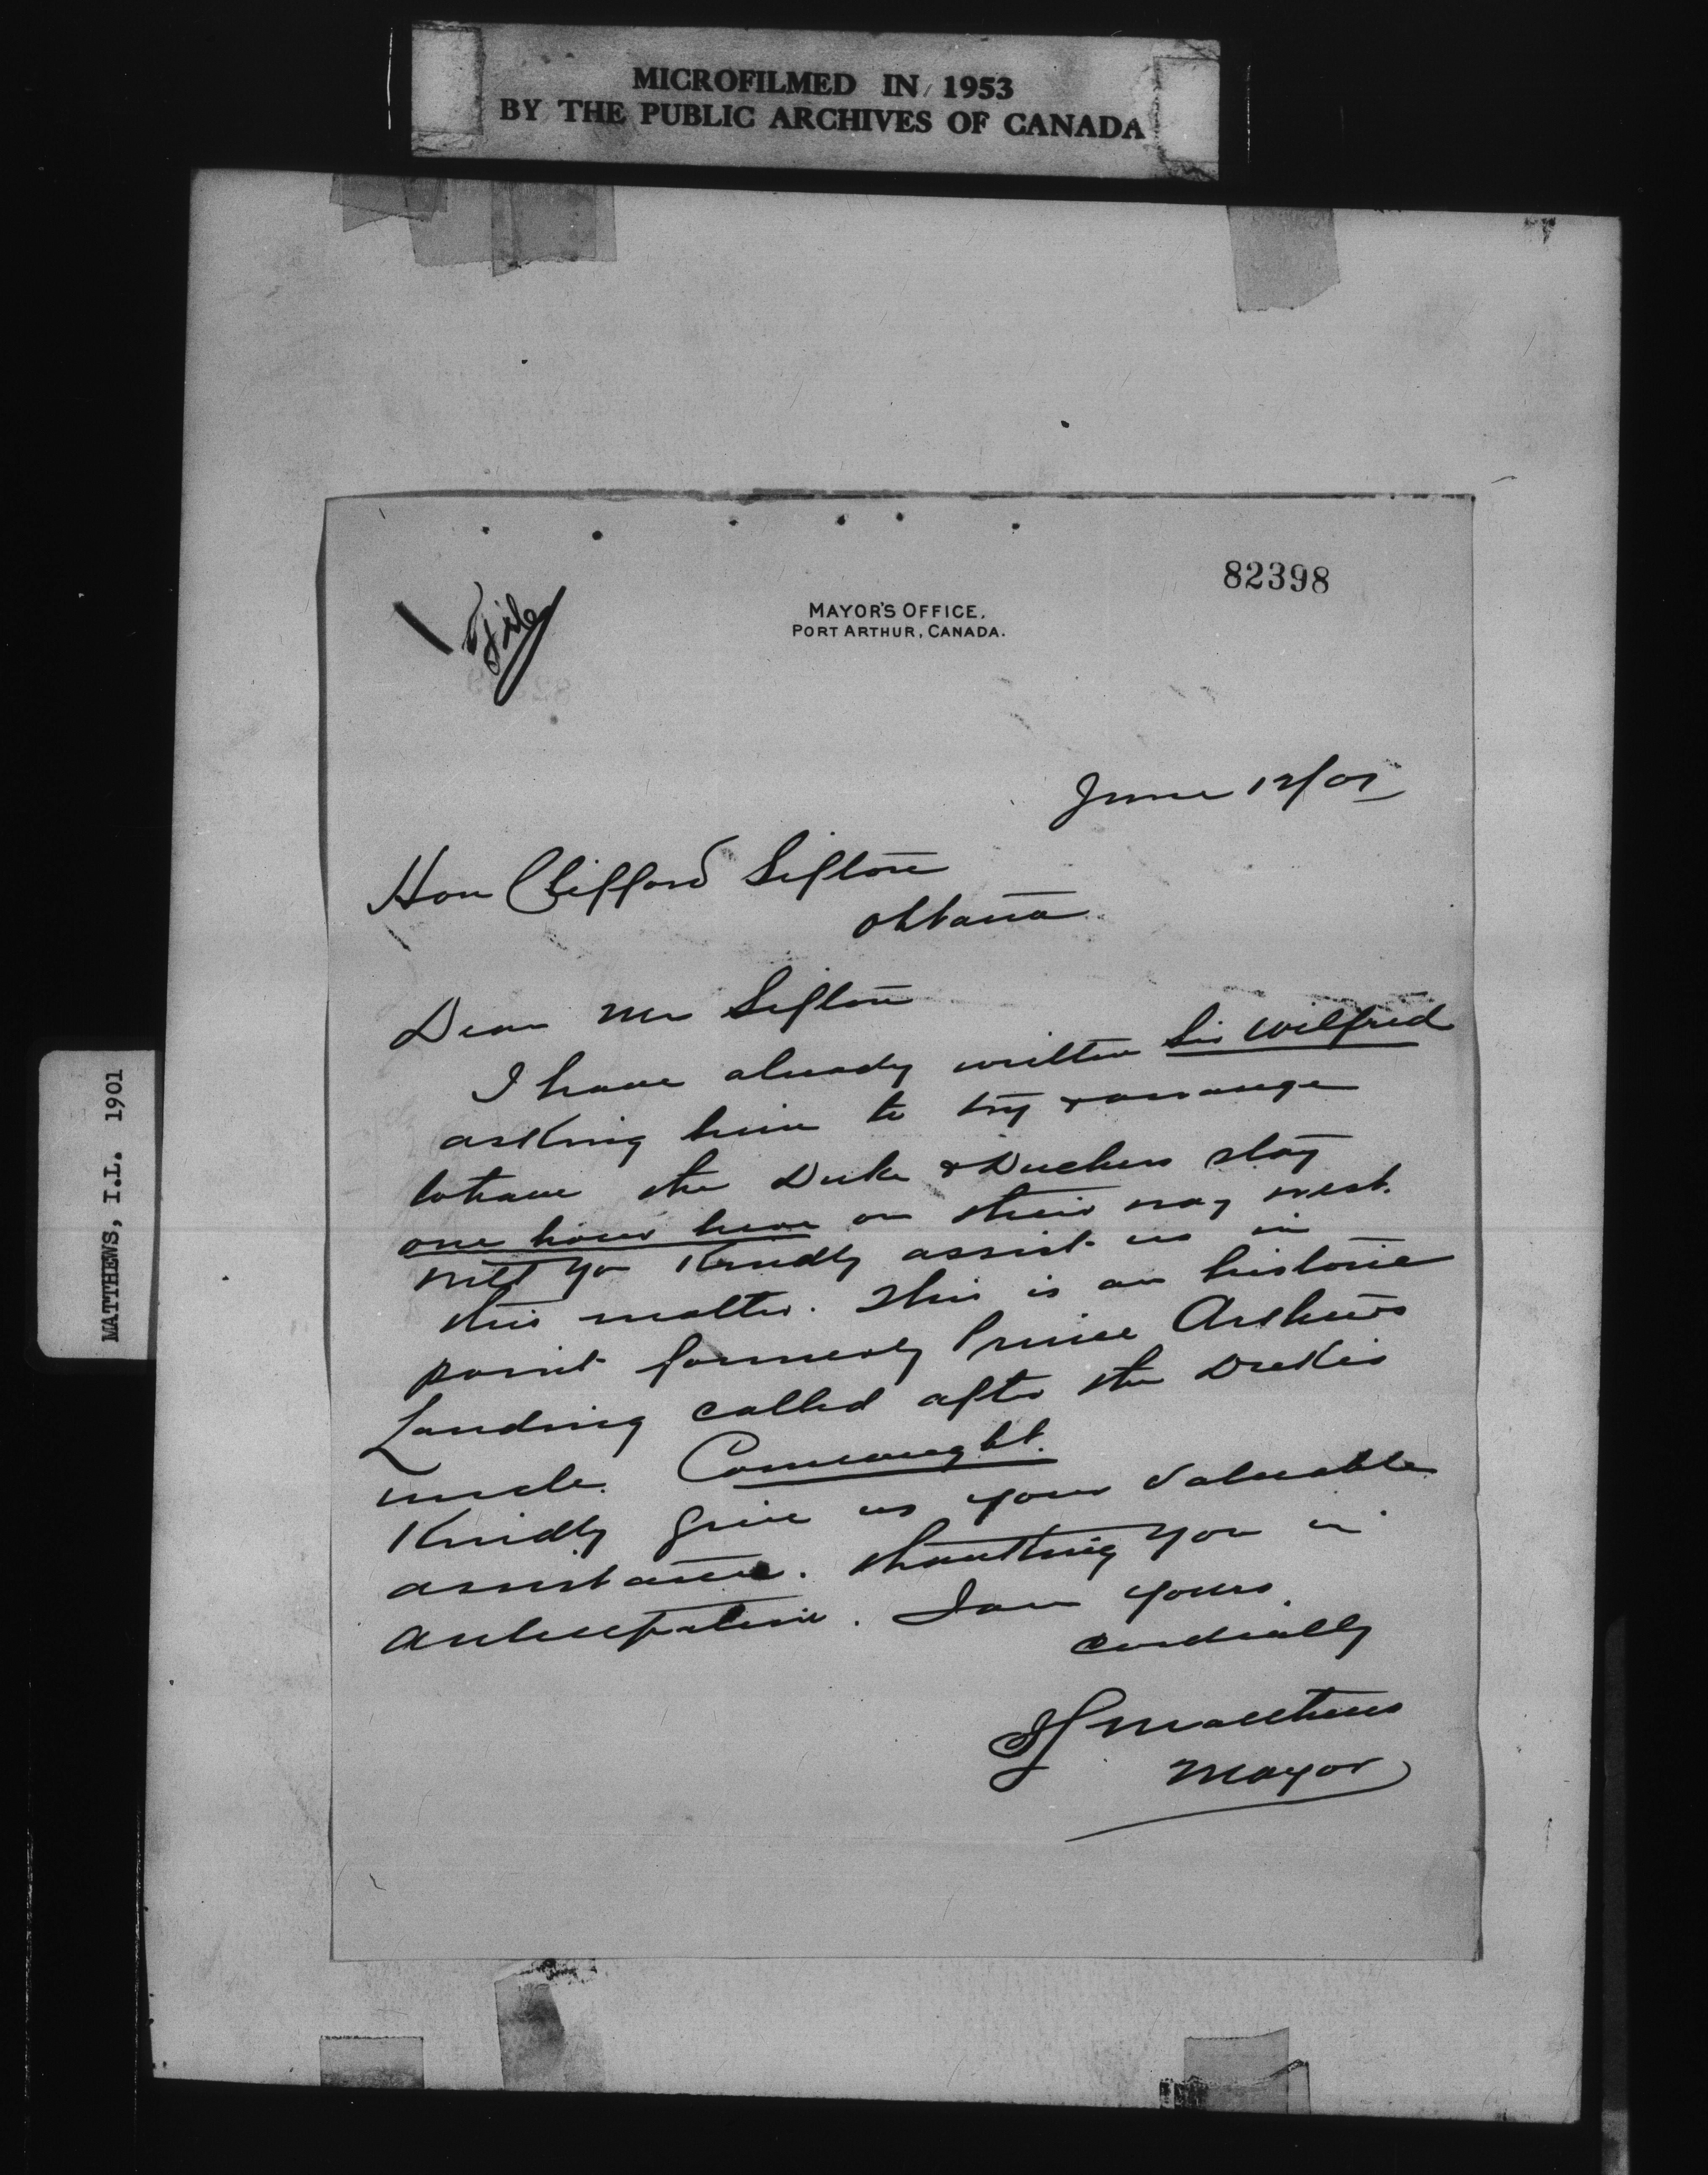 MICROFILMED IN 1953
BY THE PUBLIC ARCHIVES OF CANADA
82398
File
MAYOR'S OFFICE,
PORT ARTHUR, CANADA.
June 12/01
Hon Clifford Sifton
Ottawa
Dear Mr Sifton
I have already written Sir Wilfred
asking him to try & arrange
to have the Duke & Duchess stay
one hour here on their way west.
Will you Kindly assist us in
this matter. This is an historic
point formerly Prince Arthurs
Landing called after the Dukes
uncle. Connaught.
Kindly give us your valuable
assistance. Thanking you in
anticipation. I am yours
cordially
I L Matthews
Mayor
MATTHEWS, I.L. 1901